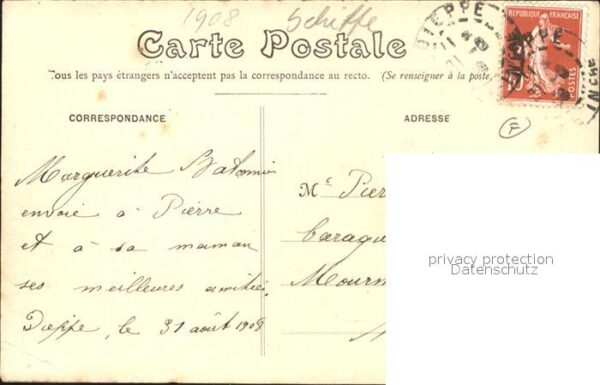 1908 Schiffe
Carte Postale
Tous les pays étrangers n'acceptent pas la correspondance au recto. (Se renseigner à la poste,
DIEPPE
RÉPUBLIQUE FRANÇAISE
POSTES
CORRESPONDANCE
ADRESSE
F
Marguerite
envoie à Pierre
et à sa maman
ses meilleures amitiés
Dieppe, le 31 août 1908
Me Pier
Mourm
privacy protection
Datenschutz